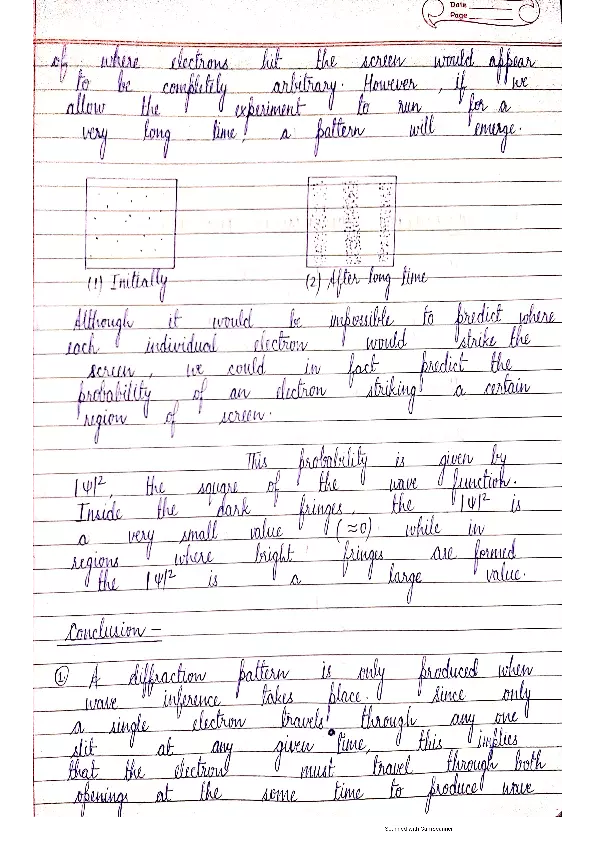 Date
Page
of where electrons hit the screen would appear
to be completely arbitrary. However, if we
allow the experiment to run for a
very long time, a pattern will emerge.
(1) Initially
(2) After long time
Although it would be impossible to predict where
each individual electron would strike the
screen, we could in fact predict the
probability of an electron striking a certain
region of screen.
This probability is given by
|ψ|², the square of the wave function.
Inside the dark fringes, the |ψ|² is
a very small value (≈0) while in
regions where bright fringes are formed
the |ψ|² is a large value.
Conclusion –
① A diffraction pattern is only produced when
wave inference takes place. Since only
a single electron travels through any one
slit at any given time, this implies
that the electron must travel through both
openings at the some time to produce wave
Scanned with CamScanner